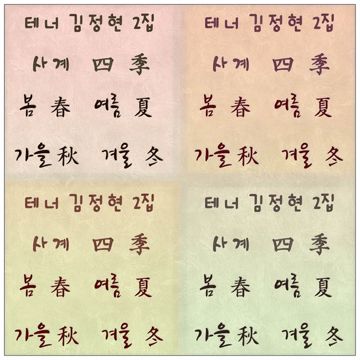 테너 김정현 2집
사계 四季
봄 春 여름 夏
가을 秋 겨울 冬
테너 김정현 2집
사계 四季
봄 春 여름 夏
가을 秋 겨울 冬
테너 김정현 2집
사계 四季
봄 春 여름 夏
가을 秋 겨울 冬
테너 김정현 2집
사계 四季
봄 春 여름 夏
가을 秋 겨울 冬